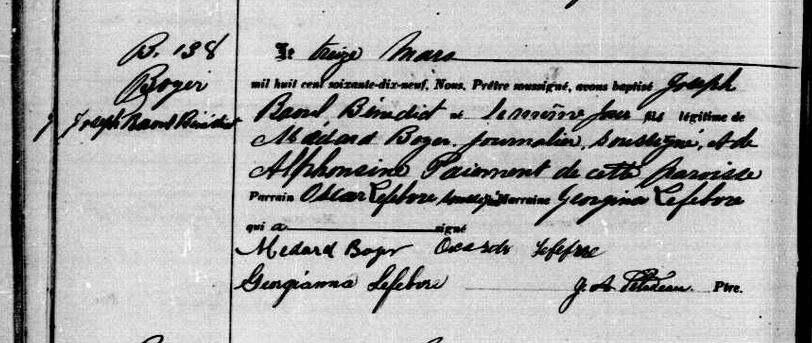 B. 138
Boyer
Joseph Raoul Bénédict
Le treize Mars
mil huit cent soixante-dix-neuf, Nous, Prêtre soussigné, avons baptisé Joseph
Raoul Bénédict né le même jour fils légitime de
Médard Boyer, journalier, soussigné, et de
Alphonsine Paiement de cette paroisse
Parrain Oscar Lefebvre soussigné Marraine Georgina Lefebvre
qui a signé
Medard Boyer Lefebvre
Georgianna Lefebvre J. A. Ptre.